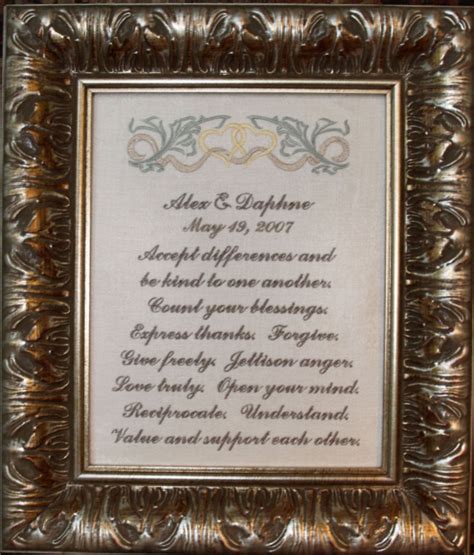 Alex & Daphne
May 19, 2007
Accept differences and
be kind to one another.
Count your blessings.
Express thanks. Forgive.
Give freely. Jettison anger.
Love truly. Open your mind.
Reciprocate. Understand.
Value and support each other.